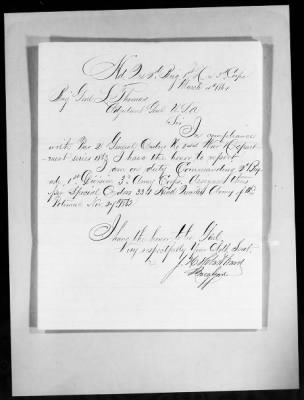 Hd. Qrs 2d Brig 1st Div 3d Corps
March 1864
Brig Genl L. Thomas
Adjutant Genl U.S.A.
Sir,
In compliance
with Par 2 General Orders No War Depart
ment series 1863 I have the honor to report
I am on duty Commanding 2d Brig
ade 1st Division 3d Army Corps, Assigned to this
per Special Orders 334 Head Quarters Army of the
Potomac Nov. 1863.
I have the honor to be Genl.
very respectfully Your Obdt. Servt.
J. H. Hobart Ward
Brig Genl